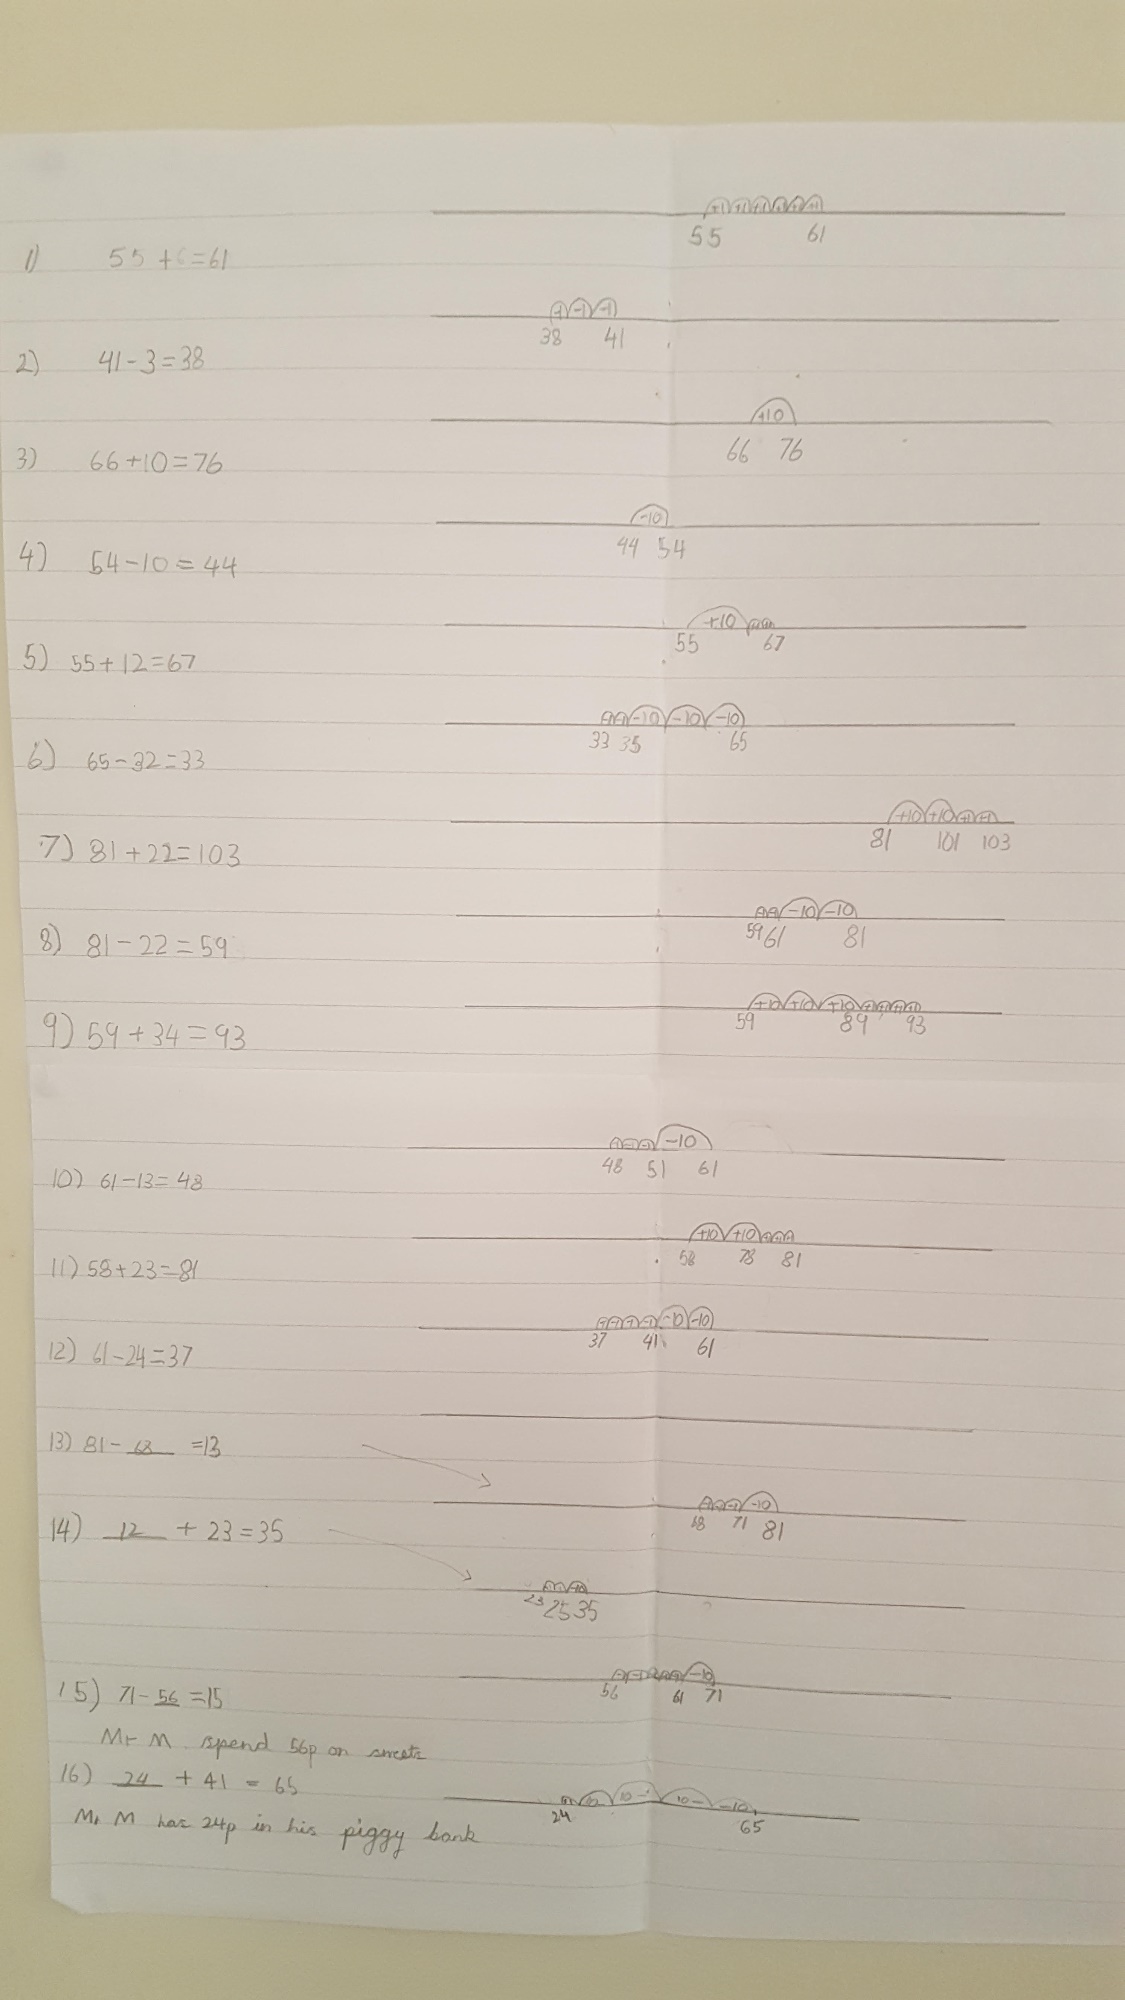 +1 +1 +1 +1 +1 +1
55 61
1) 55 + 6 = 61
-1 -1 -1
38 41
2) 41 - 3 = 38
+10
66 76
3) 66 + 10 = 76
-10
44 54
4) 54 - 10 = 44
+10
55 67
5) 55 + 12 = 67
-10 -10 -10
33 35 65
6) 65 - 32 = 33
+10 +10 +1 +1
81 101 103
7) 81 + 22 = 103
-10 -10
59 61 81
8) 81 - 22 = 59
+10 +10 +10
59 89 93
9) 59 + 34 = 93
-10
48 51 61
10) 61 - 13 = 48
+10 +10
58 78 81
11) 58 + 23 = 81
-10 -10
37 41 61
12) 61 - 24 = 37
13) 81 - 68 = 13
-10
68 71 81
14) 12 + 23 = 35
23 25 35
-10
56 61 71
15) 71 - 56 = 15
Mr M spend 56p on sweets
16) 24 + 41 = 65
10- 10- -10
24 65
Mr M has 24p in his piggy bank